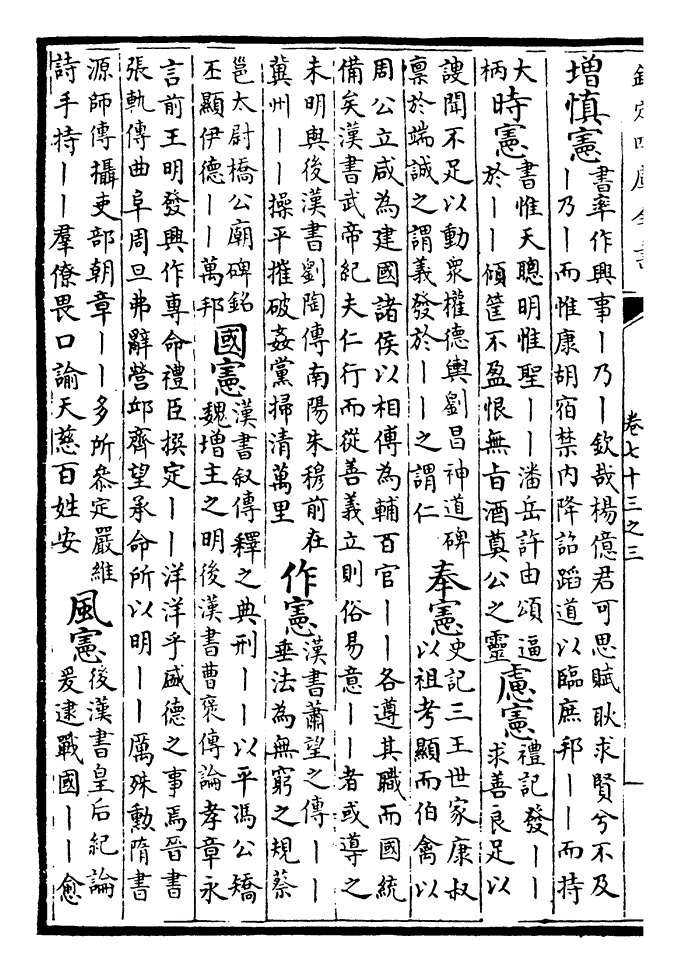 欽定四庫全書
卷七十三之三
一
增慎憲
書率作興事丨乃丨欽哉楊億君可思賦耿求賢兮不及
丨乃丨而惟康胡宿禁内降詔蹈道以臨庶邦丨丨而持
大
柄
時憲
書惟天聰明惟聖丨丨潘岳許由頌逼
於丨丨傾筐不盈恨無旨酒奠公之靈
慮憲
禮記發丨丨
求善良足以
謏聞不足以動衆權德輿劉昌神道碑
禀於端誠之謂義發於丨丨之謂仁
奉憲
史記三王世家康叔
以祖考顯而伯禽以
周公立咸為建國諸侯以相傅為輔百官丨丨各遵其職而國統
備矣漢書武帝紀夫仁行而從善義立則俗易意丨丨者或導之
未明與後漢書劉陶傳南陽朱穆前在
冀州丨丨操平摧破姦黨掃清萬里
作憲
漢書蕭望之傳丨丨
垂法為無窮之規蔡
邕太尉橋公廟碑銘
丕顯伊德丨丨萬邦
國憲
漢書叙傳釋之典刑丨丨以平馮公矯
魏增主之明後漢書曹褒傳論孝章永
言前王明發興作專命禮臣撰定丨丨洋洋乎盛德之事焉晉書
張軌傳曲阜周旦弗辭營邱齊望承命所以明丨丨厲殊勳隋書
源師傳攝吏部朝章丨丨多所叅定嚴維
詩手持丨丨羣僚畏口諭天慈百姓安
風憲
後漢書皇后紀論
爰逮戰國丨丨愈